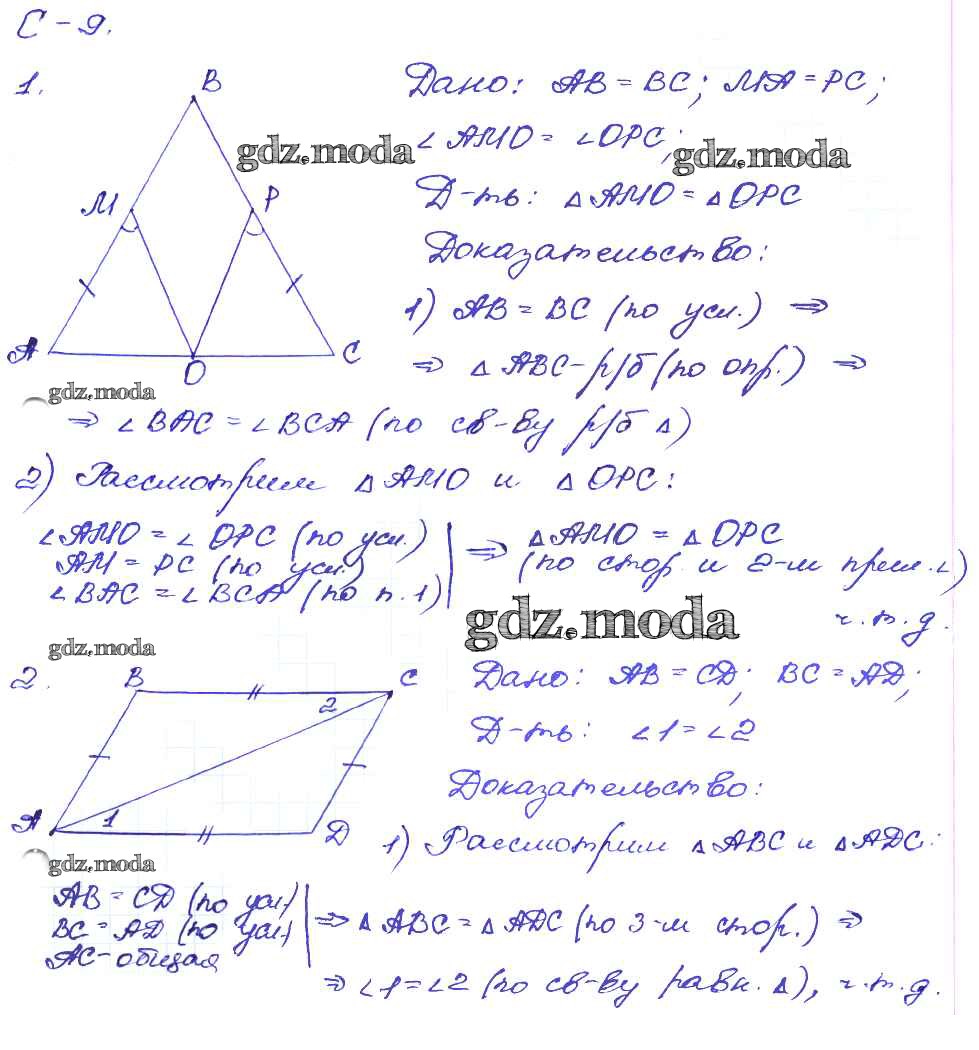 С-9.
1.
B
M
P
A
O
C
Дано: AB = BC; MA = PC;
∠AMO = ∠OPC;
gdz.moda
gdz.moda
Д-ть: △AMO = △OPC
Доказательство:
1) AB = BC (по усл.) ⇒
⇒ △ABC - р/б (по опр.) ⇒
gdz.moda
⇒ ∠BAC = ∠BCA (по св-ву р/б △)
2) Рассмотрим △AMO и △OPC:
∠AMO = ∠OPC (по усл.)
AM = PC (по усл.)
∠BAC = ∠BCA (по п.1)
⇒ △AMO = △OPC
(по стор. и 2-м прил. ∠)
gdz.moda
ч.т.д.
gdz.moda
2.
B
C
2
A
1
D
Дано: AB = CD; BC = AD;
Д-ть: ∠1 = ∠2
Доказательство:
1) Рассмотрим △ABC и △ADC:
gdz.moda
AB = CD (по усл.)
BC = AD (по усл.)
AC - общая
⇒ △ABC = △ADC (по 3-м стор.) ⇒
⇒ ∠1 = ∠2 (по св-ву равн. △), ч.т.д.